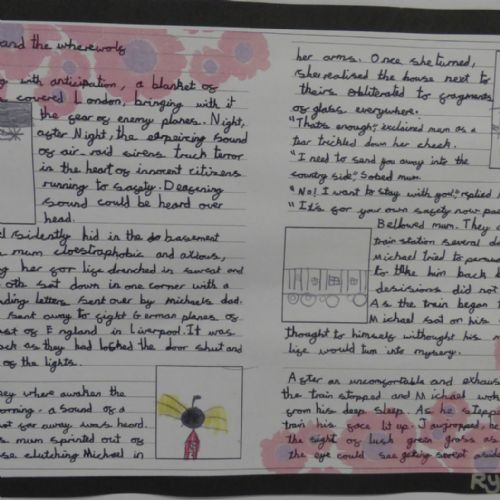 and the wherewolf
with anticipation, a blanket of
covered London, bringing with it
the fear of enemy planes. Night,
after Night, the expeircing sound
of air-raid sirens truck terror
in the heart of innocent citizens
running to safty. Deafning
sound could be heard over
head.
hid in the do basement
mum cloestraphobic and
her for life drenched in sweat and
sat down in one corner with a
letters sent over by Michaels dad.
sent away to fight German planes of
of England in Liverpool. It was
as they had locked the door shut and
of the lights.
they where awaken the
a sound of a
not far away was heard.
mum sprinted out of
clutching Michael in
her arms. Once she turned,
she realised the house next to
theirs obliterated to fragments
of glass everywhere.
"That's enough", exclaimed mum as a
tear trickled down her cheek.
"I need to send you away into the
country side", sobed mum.
"No! I want to stay with you", replied
"It's for your own safety now
Bellowed mum. They
train station several
Michael tried to
to take him back
desisions did not
As the train began
Michael sat on his
thought to himself withought his
life would turn into mystery.
After an uncomfortable and
the train stopped and Michael
from his deep sleep. As he stepped
train his face lit up. J
the sight of lush green grass as
the eye could see getting swept